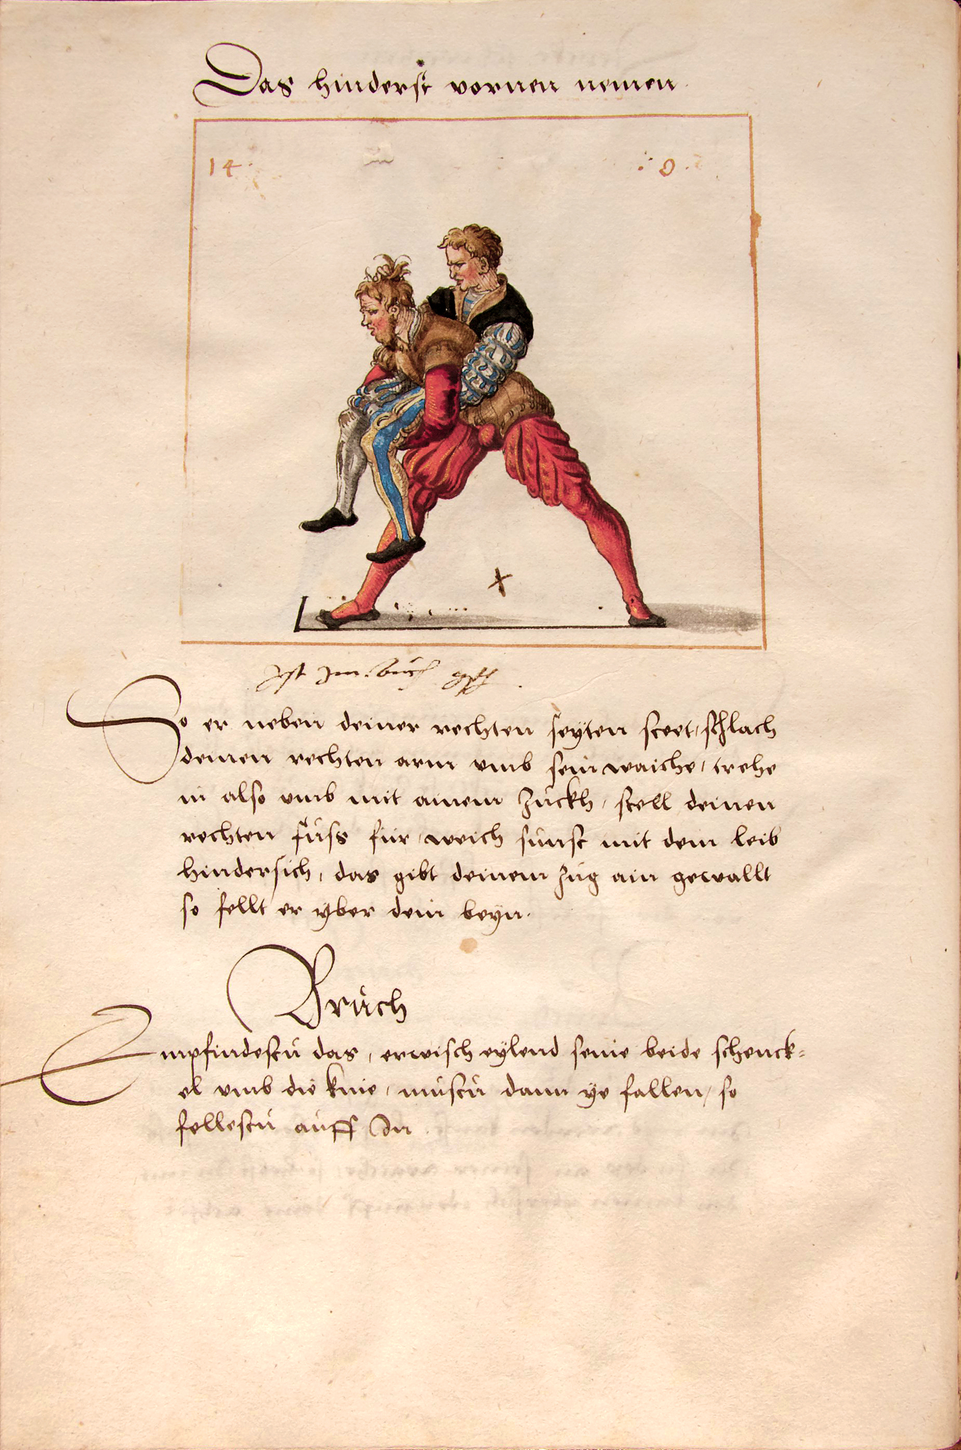 Das hinderst vornen nemen
14 . 0 .
Ist Im buch
So er neben deiner rechten seyten steet, schlach
deinen rechten arm vmb sein waiche, trehe
in also vmb mit ainem zuckh, stell deinen
rechten fuss für, weich sunst mit dem leib
hindersich, das gibt deinem zug ain gewallt
so fellt er yber dein beyn.
Bruch
Empfindestu das, erwisch eylend seine beide schenck=
el vmb die knie, mustu dann ye fallen, so
fellestu auff In